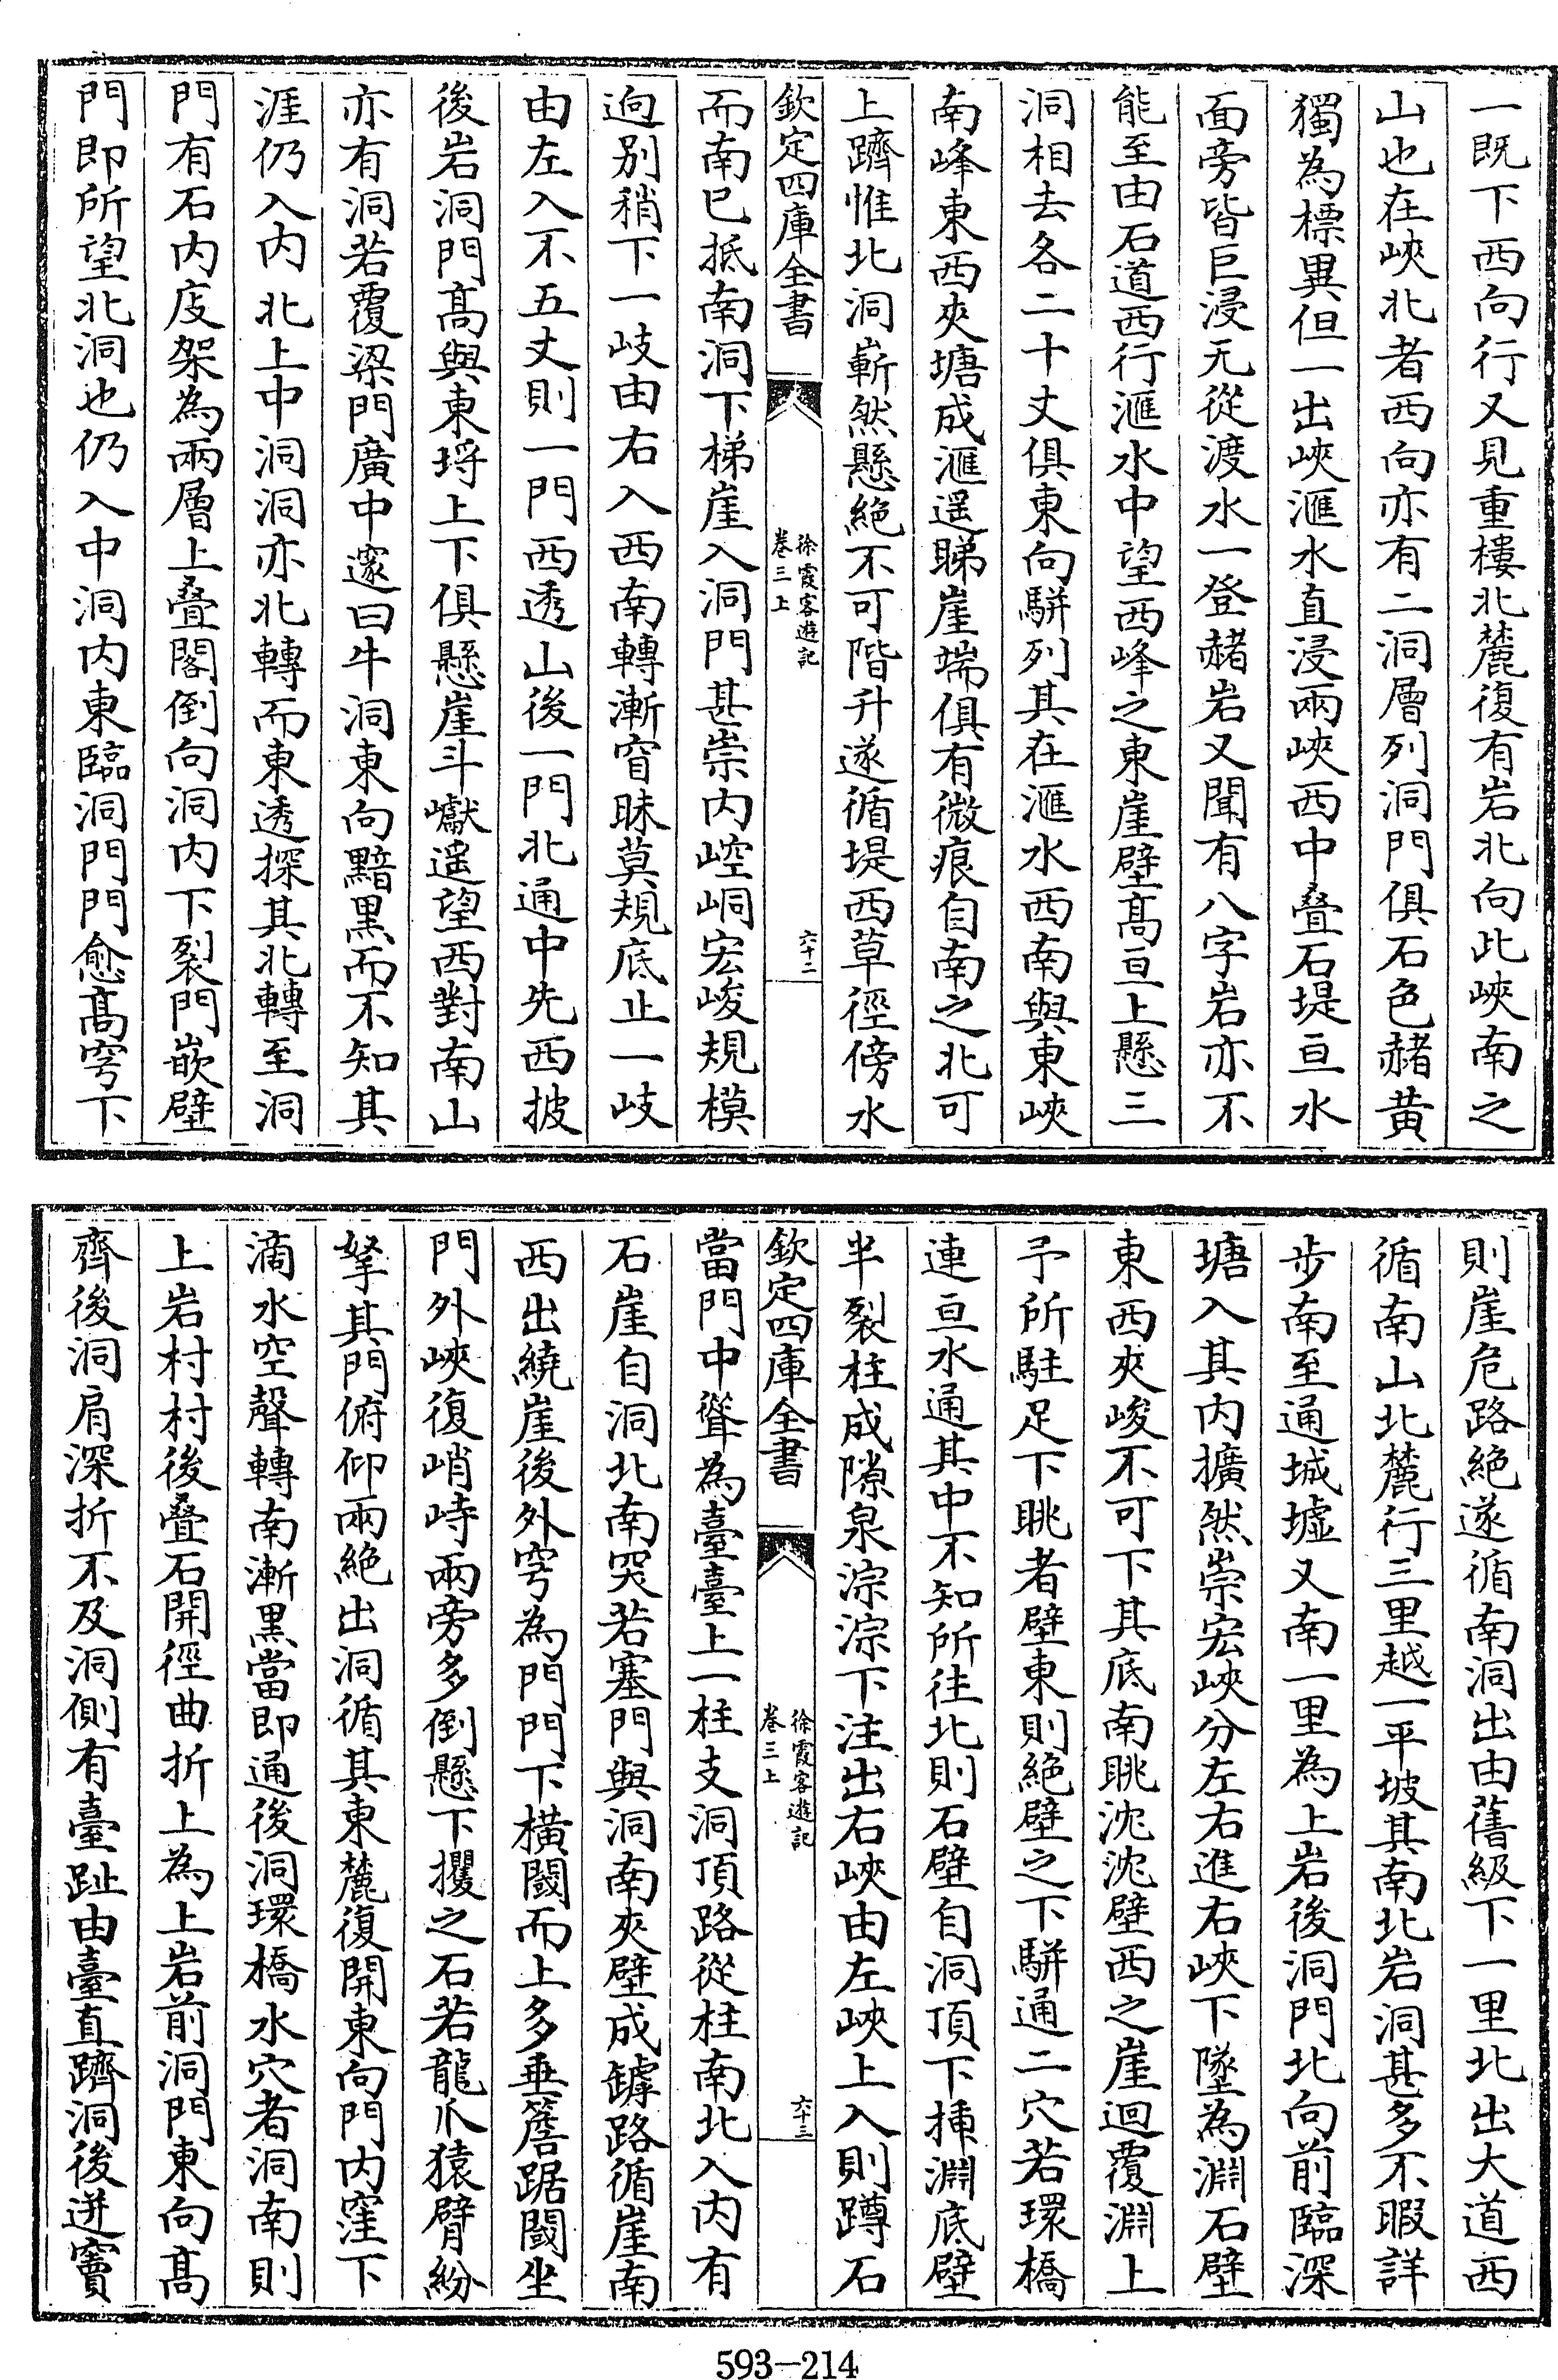 一既下西向行又見重樓北麓復有岩北向此峽南之
山也在峽北者西向亦有二洞層列洞門俱石色赭黄
獨為標異但一出峽滙水直浸兩峽西中疊石堤亘水
面旁皆巨浸无從渡水一登赭岩又聞有八字岩亦不
能至由石道西行滙水中望西峰之東崖壁髙亘上懸三
洞相去各二十丈俱東向駢列其在滙水西南與東峽
南峰東西夾塘成滙遥睇崖端俱有微痕自南之北可
上躋惟北洞嶄然懸絶不可階升遂循堤西草徑傍水
欽定四庫全書
徐霞客遊記
卷三上
六十二
而南已抵南洞下梯崖入洞門甚崇内崆峒宏峻規模
逈别稍下一岐由右入西南轉漸窅昧莫規底止一岐
由左入不五丈則一門西透山後一門北通中先西披
後岩洞門髙與東埒上下俱懸崖斗巘遥望西對南山
亦有洞若覆梁門廣中邃曰牛洞東向黯黑而不知其
涯仍入内北上中洞洞亦北轉而東透探其北轉至洞
門有石内庋架為兩層上疊閣倒向洞内下裂門嵌壁
門即所望北洞也仍入中洞内東臨洞門門愈髙穹下
則崖危路絶遂循南洞出由舊級下一里北出大道西
循南山北麓行三里越一平坡其南北岩洞甚多不暇詳
步南至通城墟又南一里為上岩後洞門北向前臨深
塘入其内擴然崇宏峽分左右進右峽下墜為淵石壁
東西夾峻不可下其底南眺沈沈壁西之崖迴覆淵上
予所駐足下眺者壁東則絶壁之下駢通二穴若環橋
連亘水通其中不知所往北則石壁自洞頂下揷淵底壁
半裂柱成隙泉淙淙下注出右峽由左峽上入則蹲石
欽定四庫全書
徐霞客遊記
卷三上
六十三
當門中聳為臺臺上一柱支洞頂路從柱南北入内有
石崖自洞北南突若塞門與洞南夾壁成罅路循崖南
西出繞崖後外穹為門門下横閾而上多垂簷踞閾坐
門外峽復峭峙兩旁多倒懸下攫之石若龍爪猿臂紛
拏其門俯仰兩絶出洞循其東麓復開東向門内窪下
滴水空聲轉南漸黑當即通後洞環橋水穴者洞南則
上岩村村後疊石開徑曲折上為上岩前洞門東向髙
齊後洞肩深折不及洞側有臺趾由臺直躋洞後迸竇
593—214